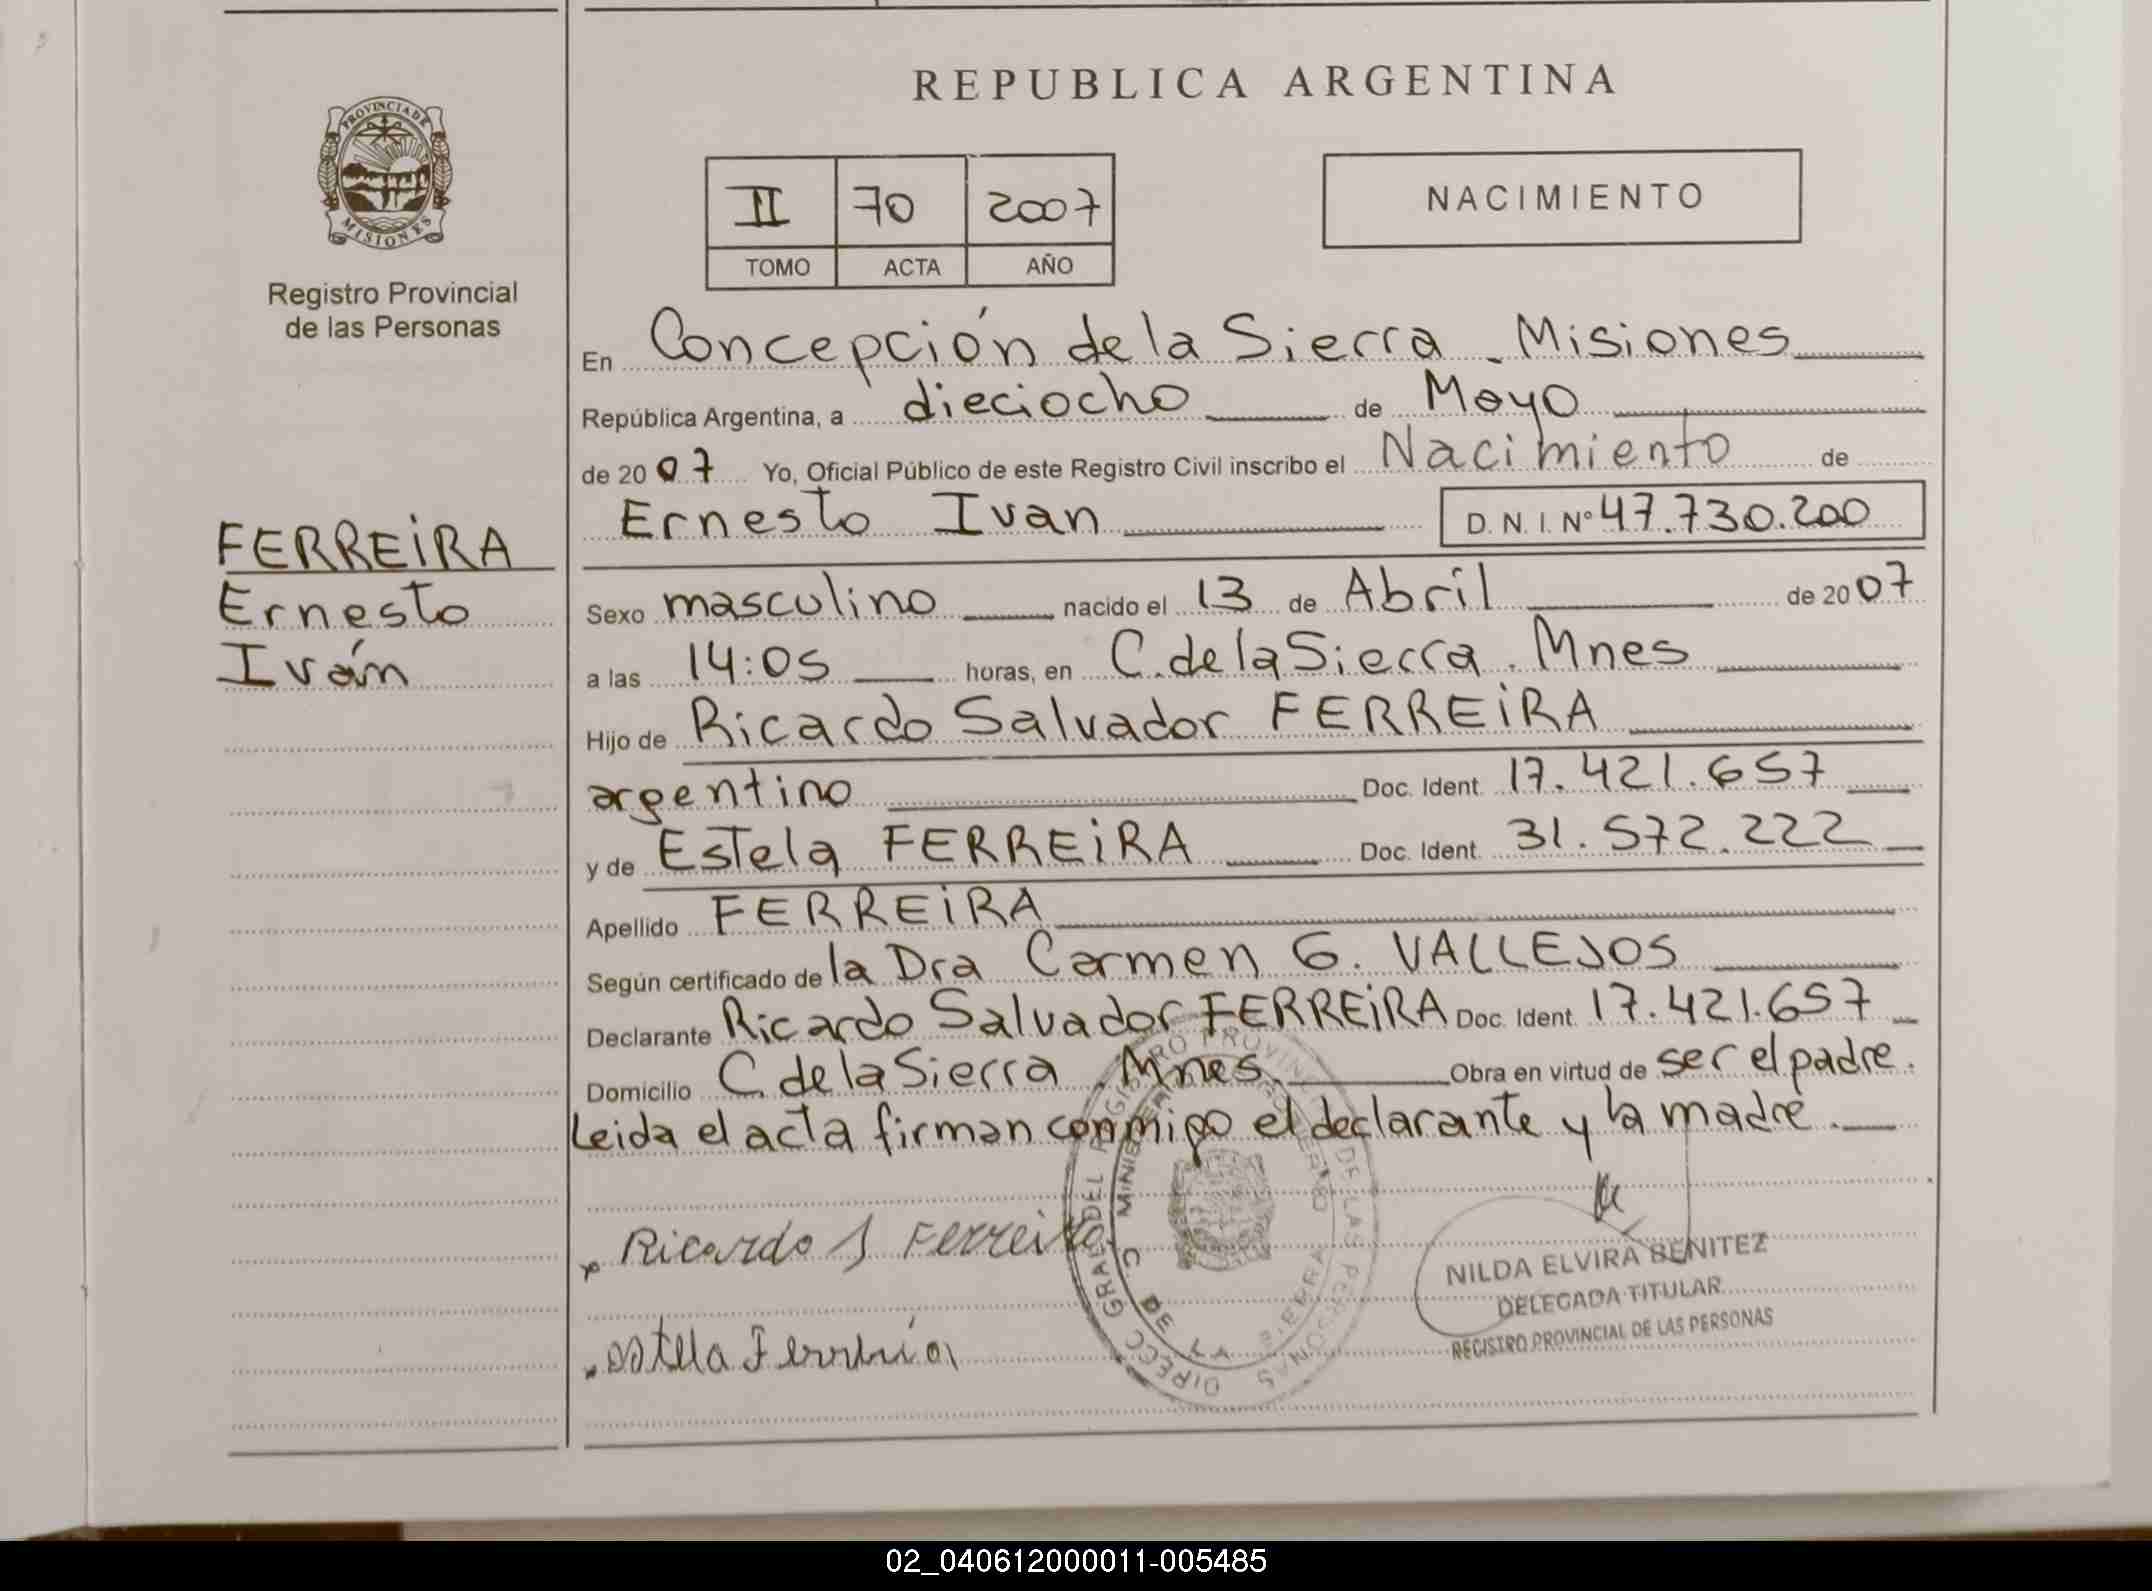 REPUBLICA ARGENTINA
PROVINCIA DE
MISIONES
Registro Provincial
de las Personas
II 70 2007
TOMO ACTA AÑO
NACIMIENTO
En Concepción de la Sierra - Misiones
República Argentina, a dieciocho de Mayo
de 2007 Yo, Oficial Público de este Registro Civil inscribo el Nacimiento de
Ernesto Ivan D.N.I. Nº 47.730.200
FERREIRA
Ernesto
Iván
Sexo masculino nacido el 13 de Abril de 2007
a las 14:05 horas, en C. de la Sierra. Mnes
Hijo de Ricardo Salvador FERREIRA
argentino Doc. Ident. 17.421.657
y de Estela FERREIRA Doc. Ident. 31.572.222
Apellido FERREIRA
Según certificado de la Dra Carmen G. VALLEJOS
Declarante Ricardo Salvador FERREIRA Doc. Ident. 17.421.657
Domicilio C. de la Sierra. Mnes. Obra en virtud de ser el padre.
Leida el acta firman conmigo el declarante y la madre.
Ricardo S Ferreira
estela Ferreira
DIRECC GRAL DEL REGISTRO PROVINC DE LAS PERSONAS
C. DE LA SIERRA
NILDA ELVIRA BENITEZ
DELEGADA TITULAR
REGISTRO PROVINCIAL DE LAS PERSONAS
02_040612000011-005485